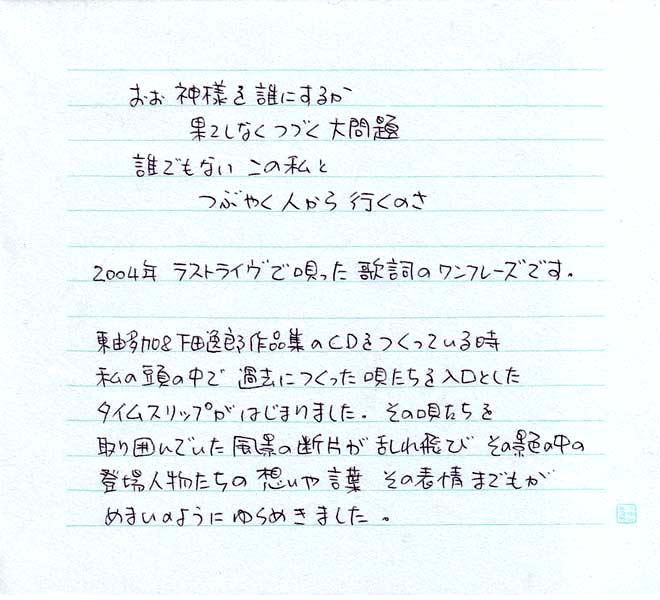 おお 神様を誰にするか
果てしなくつづく大問題
誰でもない この私と
つぶやく人から 行くのさ
2004年 ラストライヴで唄った 歌詞のワンフレーズです。
東由多加&下田逸郎作品集のCDをつくっている時
私の頭の中で 過去につくった唄たちを入口とした
タイムスリップがはじまりました。その唄たちを
取り囲んでいた風景の断片が乱れ飛び その景色の中の
登場人物たちの想いや言葉 その表情までもが
めまいのようにゆらめきました。